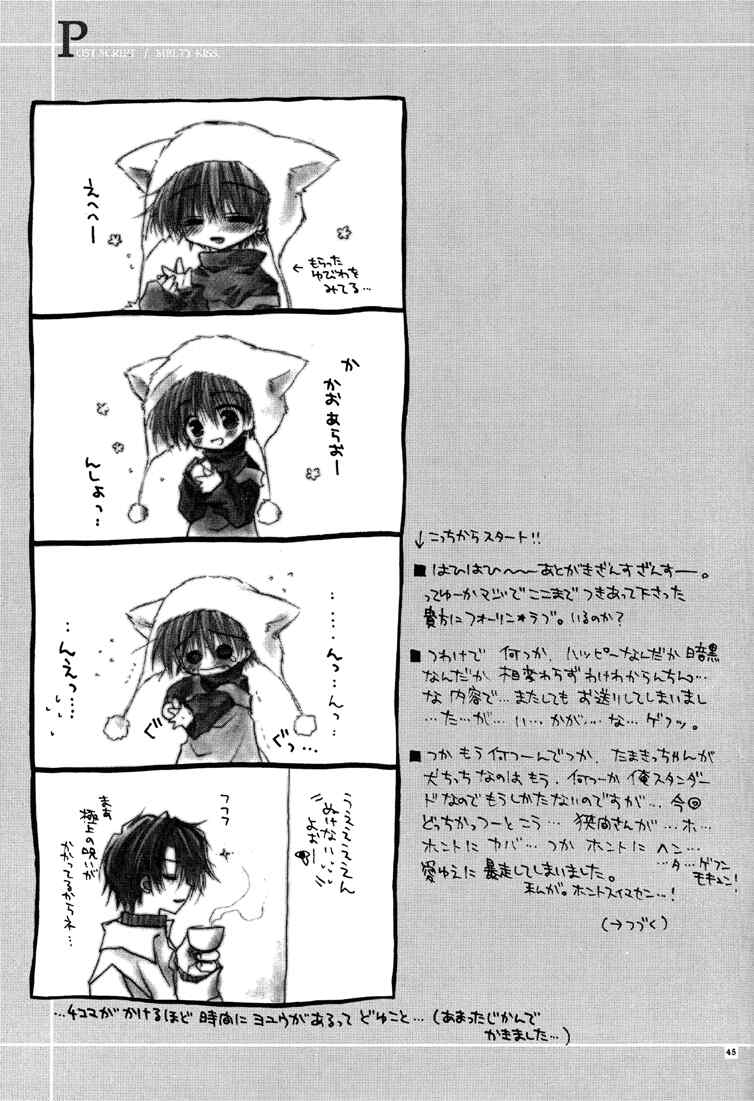 POST SCRIPT / MELTY KISS.
えへへー
←もらった
ゆびわを
みてる…
か
かおあらおー
んしょっ…
…んっ…んっ…
…んえっ…
ぐっ…
ぐ
うえええええん
ぬけない…
よおー
フフフ
まぁ
極上の呪いが
かかってるからネ…
…4コマがかけるほど時間にヨユウがあるってどゆこと…(あまったじかんで
かきました…)
↓こっちからスタート!!
■はひはひ〜〜あとがきざんすざんすー。
ってゆーかマジでここまでつきあって下さった
貴方にフォーリン*ラブ。いるのか?
■つわけで 何つか、ハッピーなんだか暗黒
なんだか相変わらずわけわからんちんっ…
な内容で…またしてもお送りしてしまいまし
…た…が…い…かが…な…ゲフッ。
■つかもう何つーんでつか、たまきっちゃんが
犬ちっちなのはもう、何つーか俺スタンダー
ドなのでもうしかたないのですが…今回
どっちかっつーとこう…狭間さんが…ホ…
ホントにヤバ…つかホントにヘン…
…タ…ゲフン
モキュン!
愛ゆえに暴走してしまいました。
私が。ホントスイマセン…!
(→つづく)
45